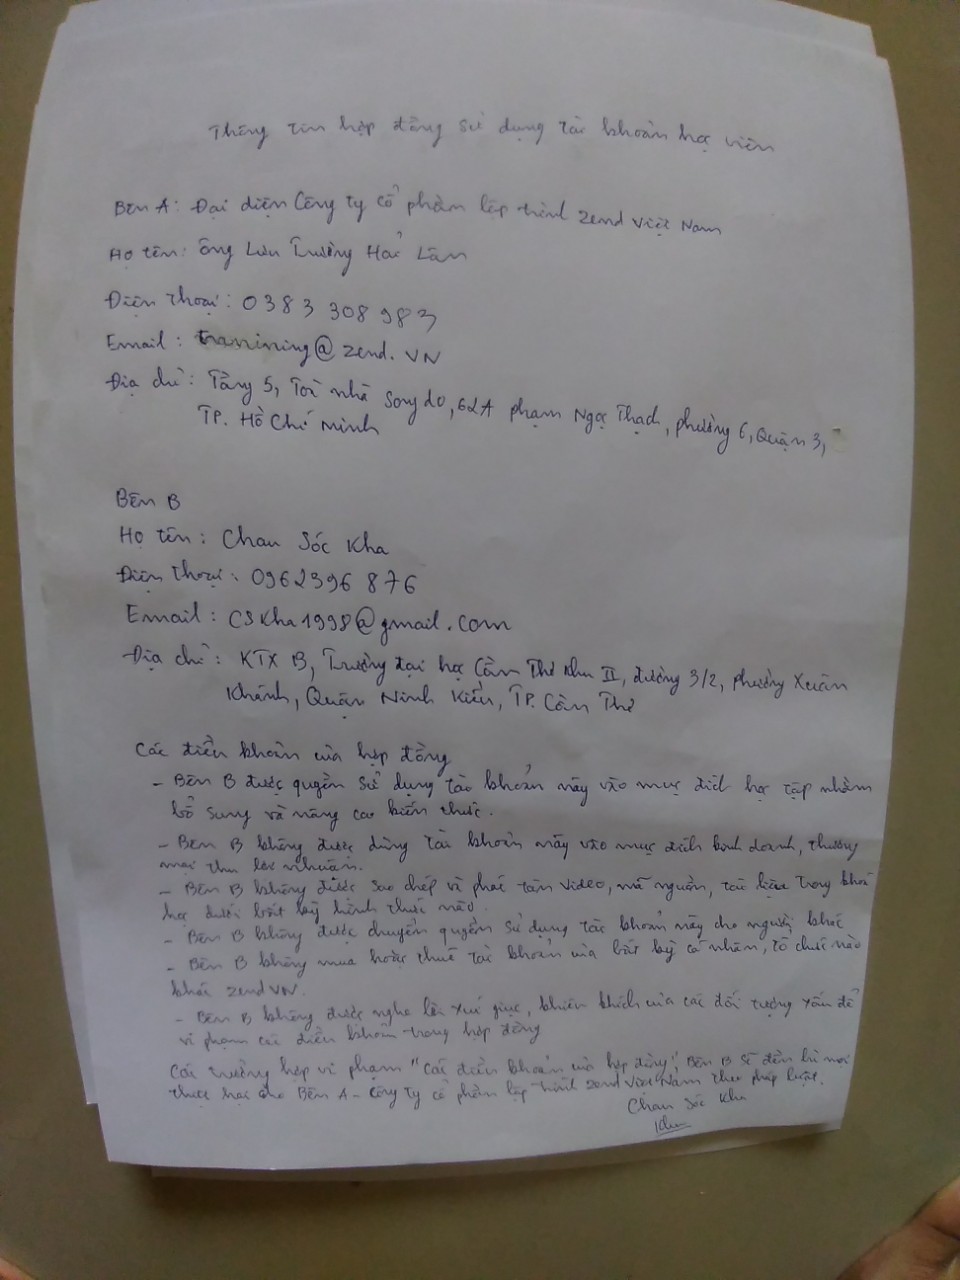 Thông tin hợp đồng sử dụng tài khoản học viên
Bên A: Đại diện Công ty cổ phần lập trình Zend Việt Nam
Họ tên: Ông Lưu Trường Hải Lân
Điện thoại: 0383 308 983
Email: tranining@zend.VN
Địa chỉ: Tầng 5, Toà nhà Songdo, 62A phạm Ngọc Thạch, phường 6, Quận 3,
TP. Hồ Chí Minh
Bên B
Họ tên: Chau Sóc Kha
Điện thoại: 0962396 876
Email: CSKha1998@gmail.com
Địa chỉ: KTX B, Trường đại học Cần Thơ khu II, đường 3/2, phường Xuân
Khánh, Quận Ninh Kiều, TP. Cần Thơ
Các điều khoản của hợp đồng
- Bên B được quyền sử dụng tài khoản này vào mục đích học tập nhằm
bổ sung và nâng cao kiến thức.
- Bên B không được dùng tài khoản này vào mục đích kinh doanh, thương
mại thu lợi nhuận.
- Bên B không được sao chép và phát tán video, mã nguồn, tài liệu trong khoá
học dưới bất kỳ hình thức nào.
- Bên B không được chuyển quyền sử dụng tài khoản này cho người khác
- Bên B không mua hoặc thuê tài khoản của bất kỳ cá nhân, tổ chức nào
khác zend VN.
- Bên B không được nghe lời xúi giục, khiến khích của các đối tượng xấu để
vi phạm các điều khoản trong hợp đồng
Các trường hợp vi phạm "Các điều khoản của hợp đồng", Bên B sẽ đền bù mọi
thiệt hại cho Bên A - Công ty cổ phần lập trình Zend Việt Nam theo pháp luật.
Chau Sóc Kha
Kha